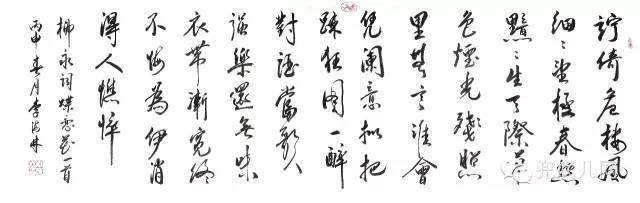 竚倚危樓風
細〻望極春愁
黯〻生天際草
色煙光殘照
里無言誰會
凭闌意擬把
疎狂圖一醉
對酒當歌
強樂還無味
衣帶漸寬終
不悔為伊消
得人憔悴
柳永詞蝶戀花一首
丙申春月李海林